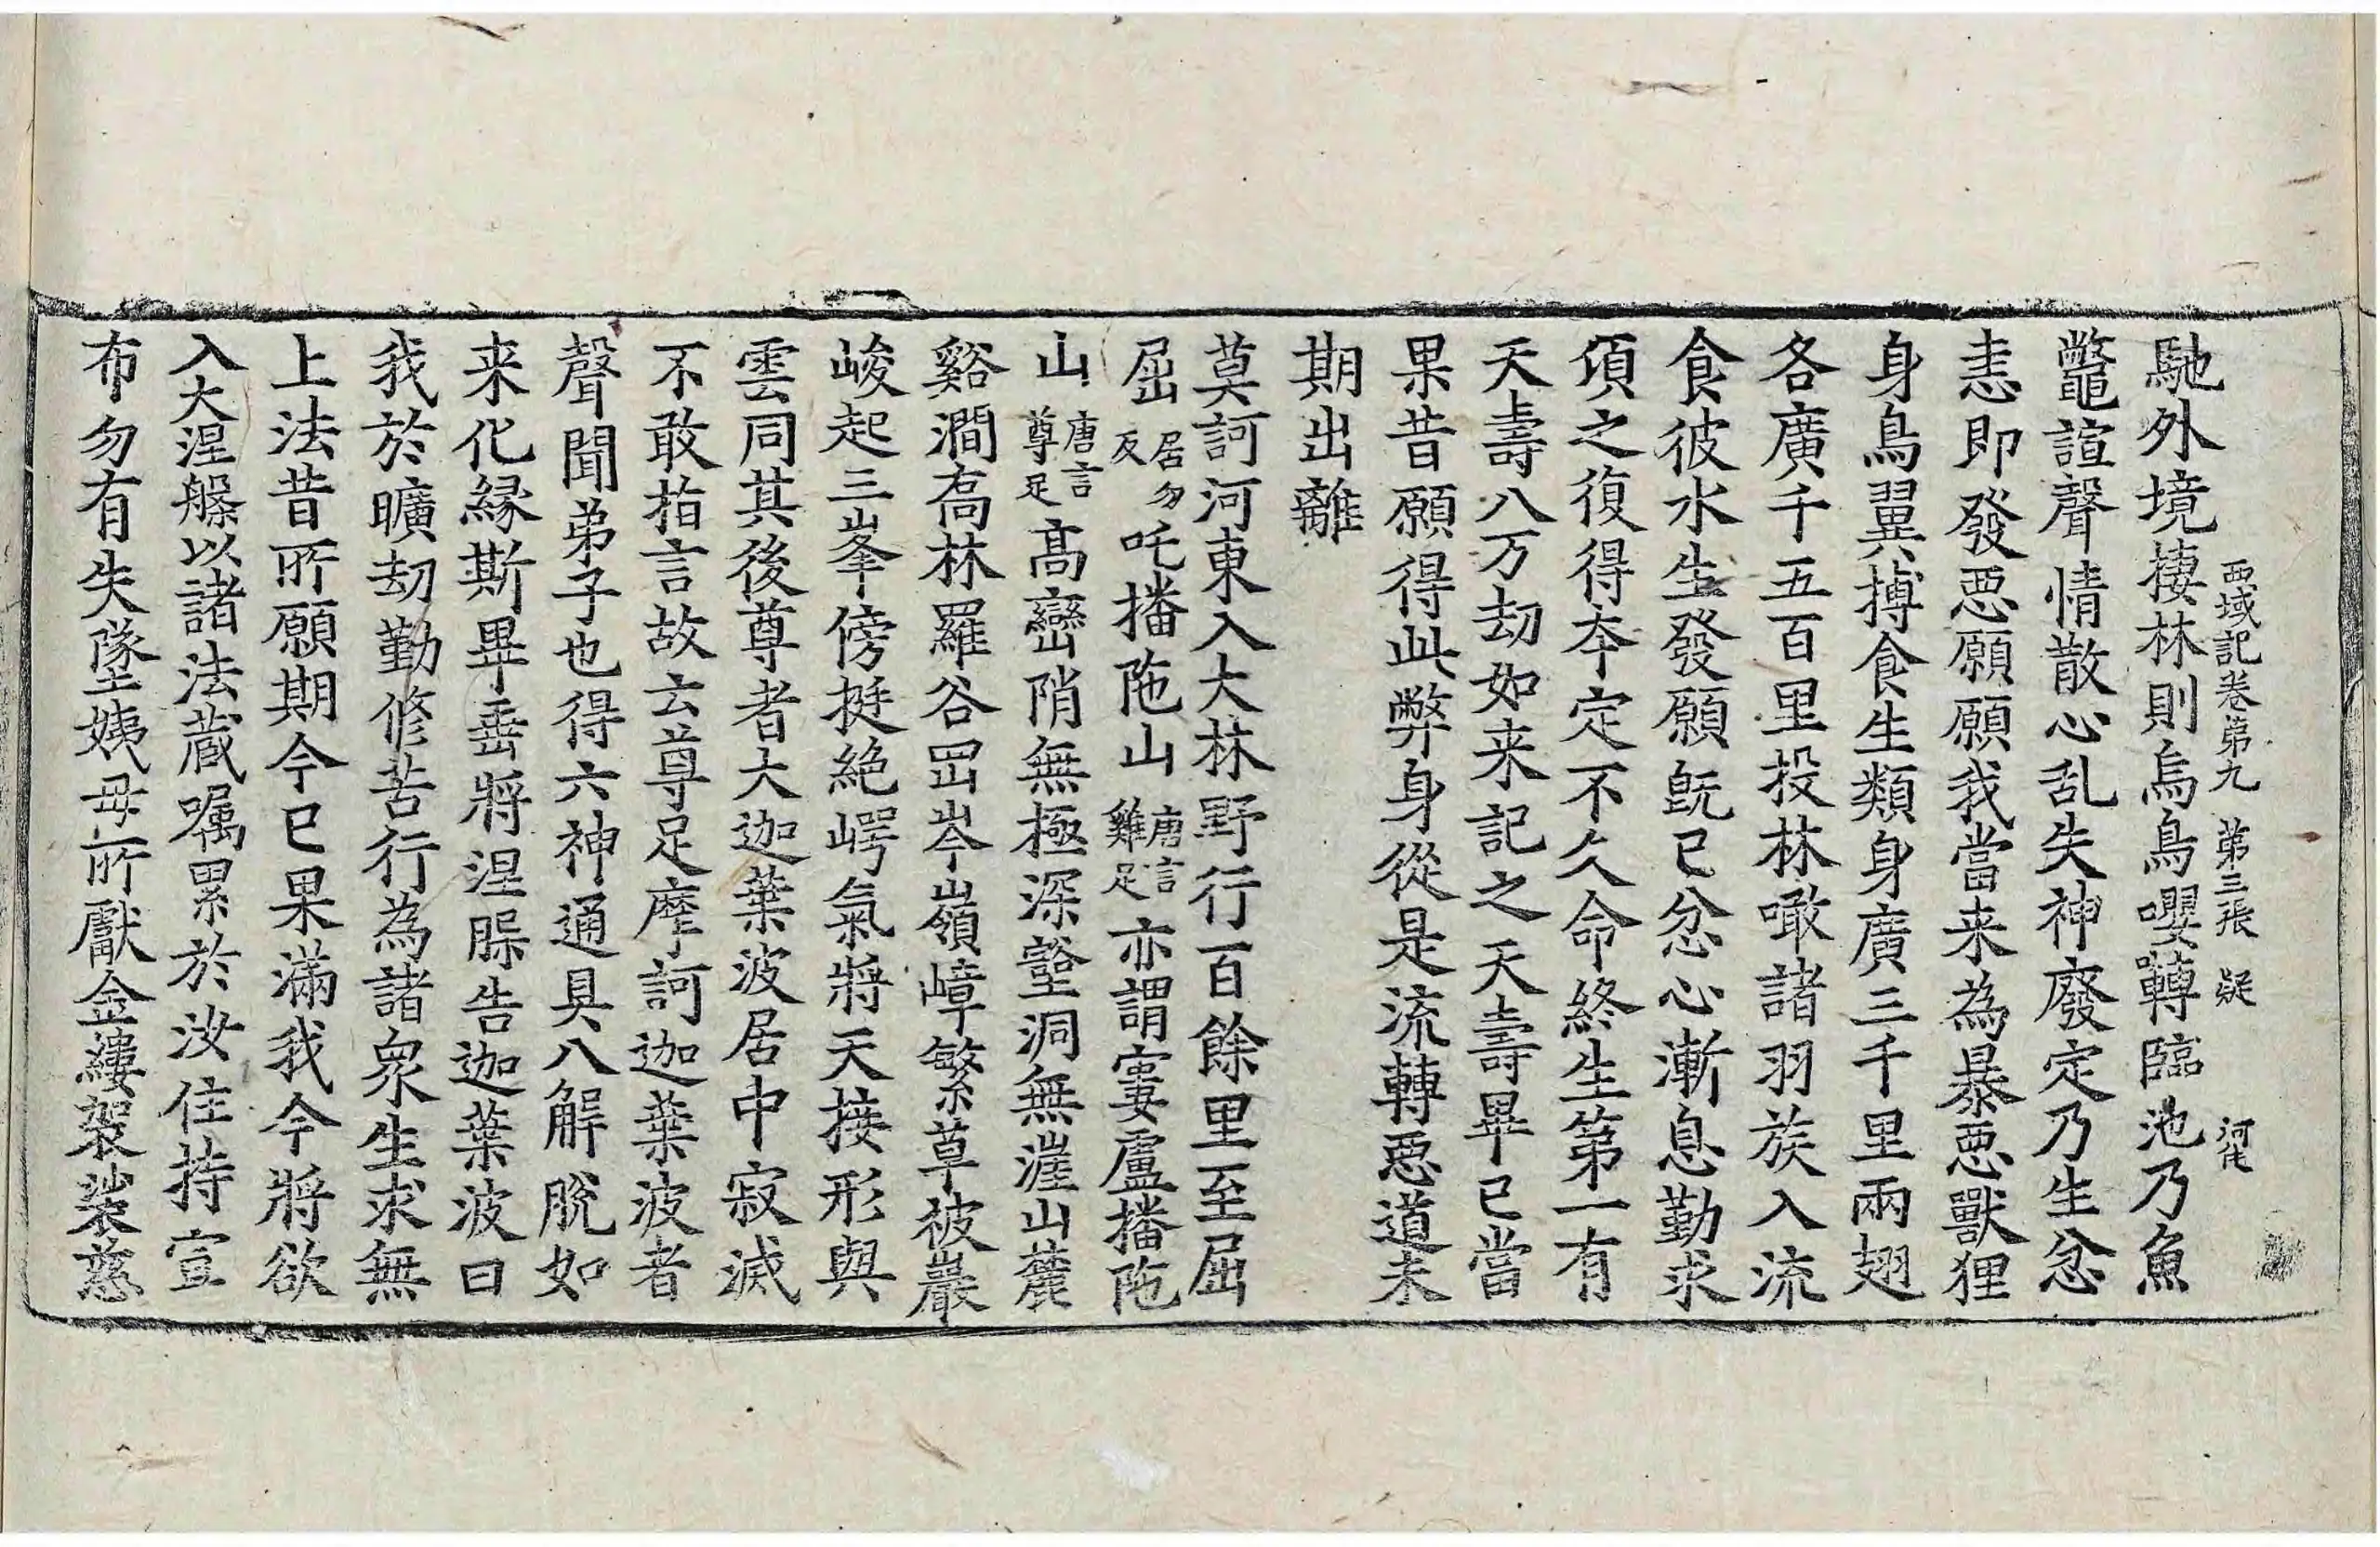 西域記卷第九 第三張 疑
馳外境棲林則烏鳥嚶囀臨池乃魚
鼈諠聲情散心乱失神廢定乃生忿
恚即發惡願願我當来為暴惡獸狸
身鳥翼搏食生類身廣三千里兩翅
各廣千五百里投林噉諸羽族入流
食彼水生發願旣已忿心漸息勤求
頃之復得夲定不久命終生第一有
天壽八万劫如来記之天壽畢已當
果昔願得此弊身從是流轉惡道未
期出離
莫訶河東入大林野行百餘里至屈
屈居勿反吒播陁山唐言雞足亦謂窶盧播陁
山唐言尊足高巒陗無極深壑洞無涯山麓
谿澗喬林羅谷罡岑嶺嶂繁草被巖
峻起三峯傍挺絶崿氣將天接形與
雲同其後尊者大迦葉波居中寂滅
不敢指言故云尊足摩訶迦葉波者
聲聞弟子也得六神通具八解脫如
来化緣斯畢垂將涅槃告迦葉波曰
我於曠劫勤修苦行為諸衆生求無
上法昔所願期今已果滿我今將欲
入大涅槃以諸法蔵嘱累於汝住持宣
布勿有失墜姨母所獻金縷袈裟慈